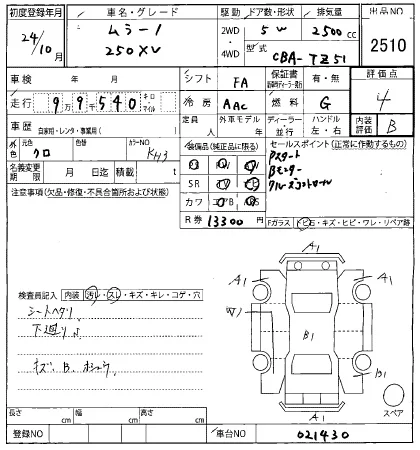 初度登録年月 車名・グレード 駆動 ドア数・形状 排気量 出品NO
24/10月 ムラーノ 250XV 2WD 4WD 5W 2500cc 2510
型式 CBA-TZ51
車検 年 月 シフト FA 保証書 有・無 評価点
走行 9万9千540 キロ・マイル 冷房 AAC 燃料 G 4
車歴 自家用・レンタ・事業用( ) 定員 人 外車モデル 年 ディーラー 並行 ハンドル 左・右 内装評価 B
外色 元色 クロ 色替 カラーNO KH3 装備品(純正品に限る) セールスポイント(正常に作動するもの)
名義変更期限 月 日迄 積載 t
Pスタート
Bモニター
クルーズコントロール
SR
カワ
注意事項(欠品・修復・不具合箇所および状態)
R券 13300円
Fガラス トビ石・キズ・ヒビ・ワレ・リペア跡
A1
A1 A1
検査員記入 内装 汚レ・スレ・キズ・キレ・コゲ・穴
シートヘタリ
W1
下廻りサ
B1
キズ、B、
B1
スペア
A1
長さ cm 幅 cm 高さ cm
登録NO 車台NO 021430